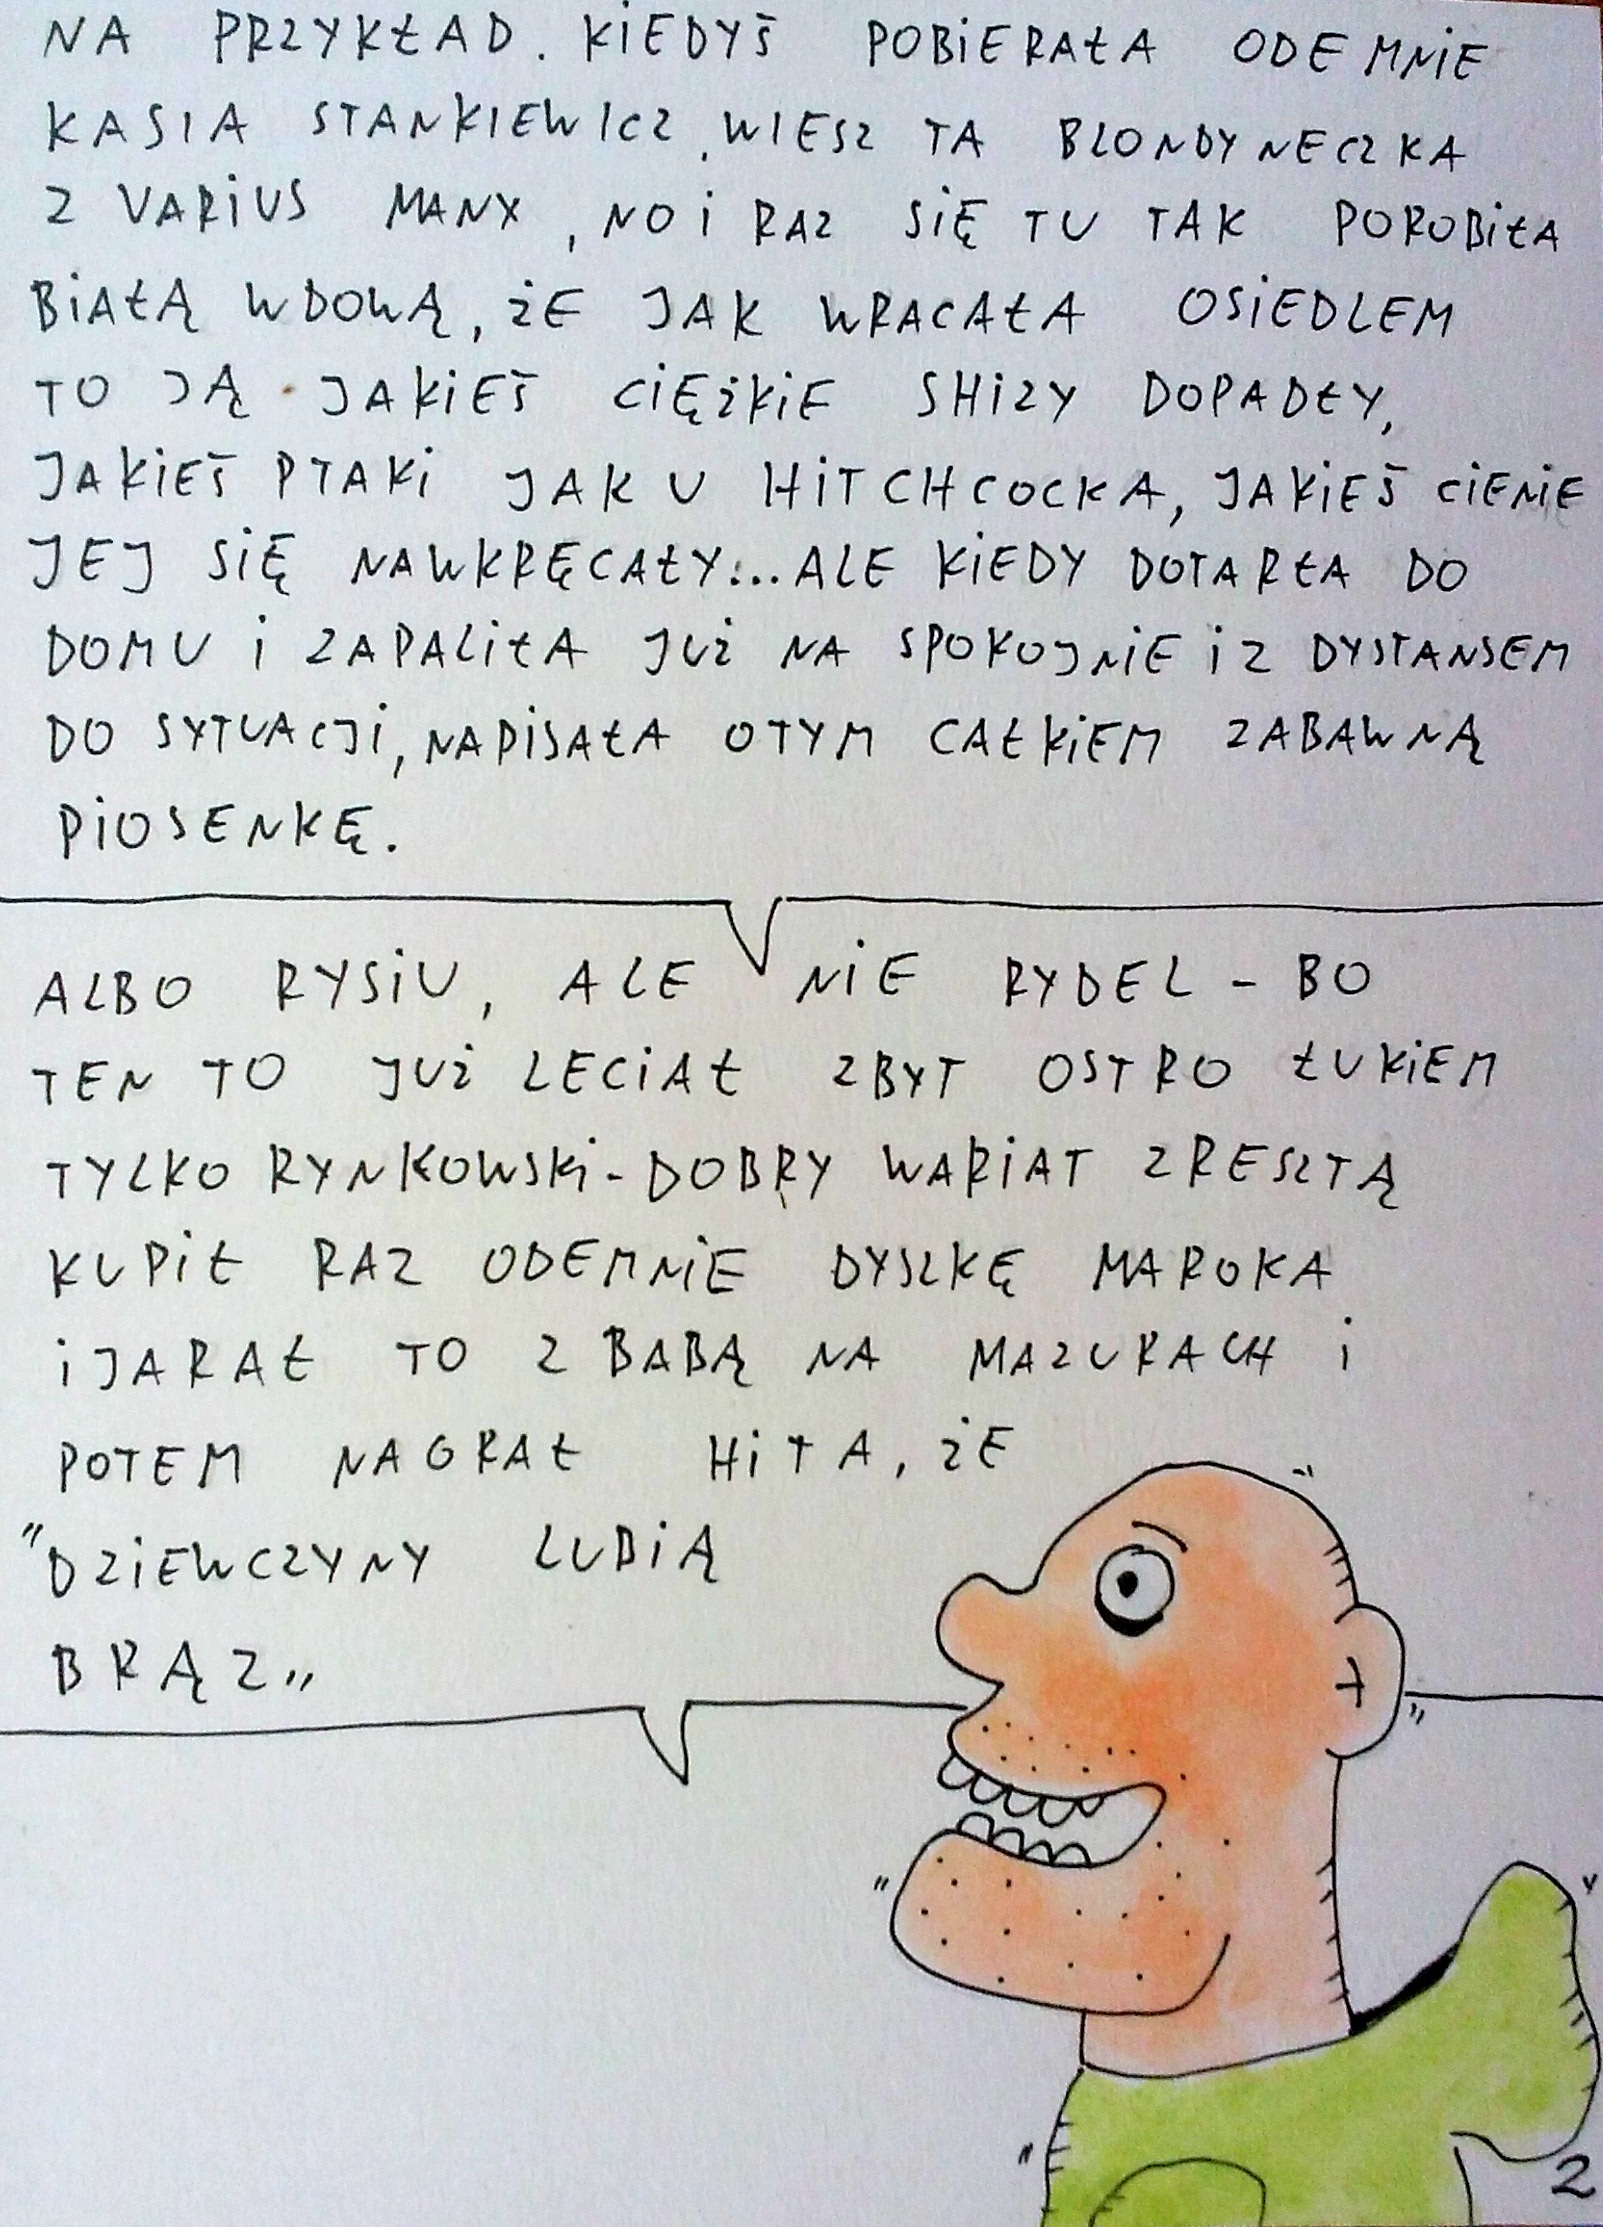 NA PRZYKŁAD. KIEDYŚ POBIERAŁA ODEMNIE
KASIA STANKIEWICZ, WIESZ TA BLONDYNECZKA
Z VARIUS MANX, NO I RAZ SIĘ TU TAK POROBIŁA
BIAŁĄ WDOWĄ, ŻE JAK WRACAŁA OSIEDLEM
TO JĄ JAKIEŚ CIĘŻKIE SHIZY DOPADŁY,
JAKIEŚ PTAKI JAK U HITCHCOCKA, JAKIEŚ CIENIE
JEJ SIĘ NAWKRĘCAŁY... ALE KIEDY DOTARŁA DO
DOMU I ZAPALIŁA JUŻ NA SPOKOJNIE I Z DYSTANSEM
DO SYTUACJI, NAPISAŁA O TYM CAŁKIEM ZABAWNĄ
PIOSENKĘ.
ALBO RYSIU, ALE NIE RYDEL - BO
TEN TO JUŻ LECIAŁ ZBYT OSTRO ŁUKIEM
TYLKO RYNKOWSKI - DOBRY WARIAT ZRESZTĄ
KUPIŁ RAZ ODEMNIE DYSZKĘ MAROKA
I JARAŁ TO Z BABĄ NA MAZURACH I
POTEM NAGRAŁ HITA, ŻE
"DZIEWCZYNY LUBIĄ
BRĄZ"
2